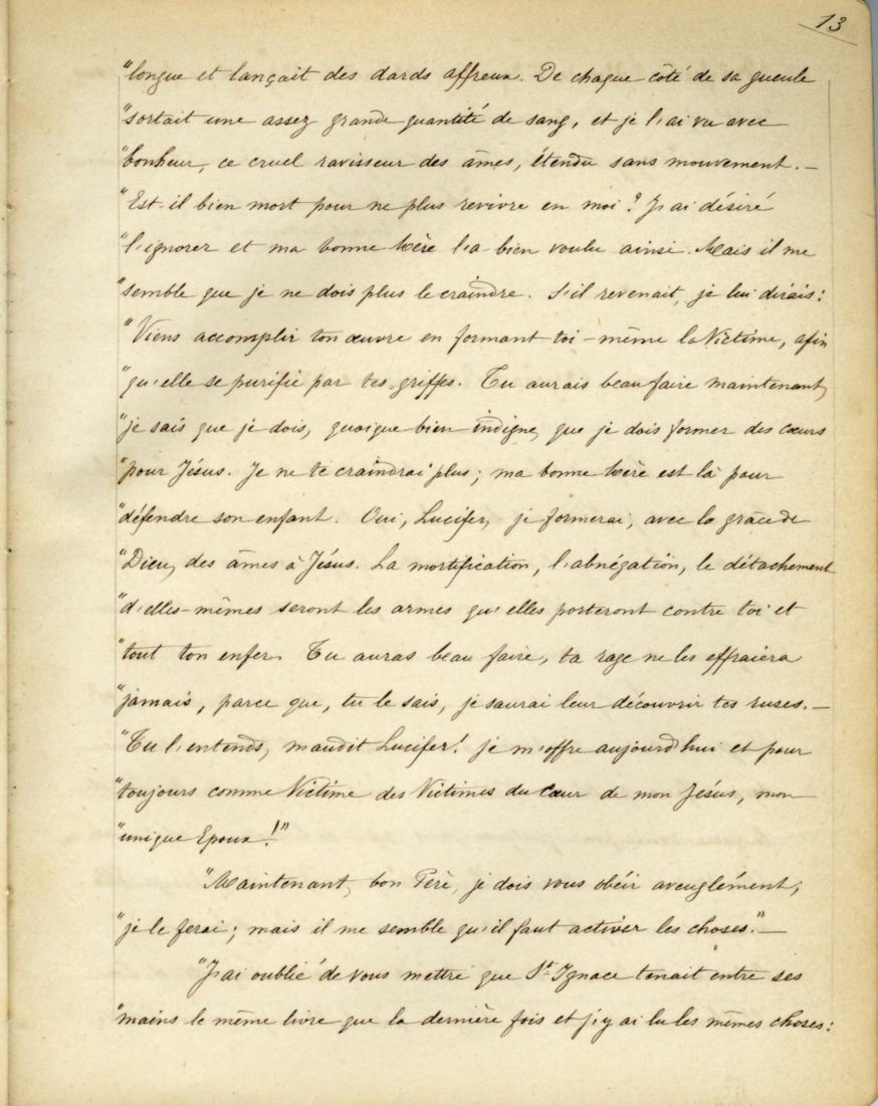 13
"longue et lançait des dards affreux. De chaque côté de sa gueule
"sortait une assez grande quantité de sang, et je l'ai vu avec
"bonheur, ce cruel ravisseur des âmes, étendu sans mouvement. —
"Est-il bien mort pour ne plus revivre en moi? J'ai désiré
"l'ignorer et ma bonne Mère l'a bien voulu ainsi. Mais il me
"semble que je ne dois plus le craindre. S'il revenait, je lui dirais:
"Viens accomplir ton œuvre en formant toi-même la Victime, afin
"qu'elle se purifie par tes griffes. Tu aurais beau faire maintenant,
"je sais que je dois, quoique bien indigne, que je dois former des cœurs
"pour Jésus. Je ne te craindrai plus; ma bonne Mère est là pour
"défendre son enfant. Oui, Lucifer, je formerai, avec la grâce de
"Dieu, des âmes à Jésus. La mortification, l'abnégation, le détachement
"d'elles-mêmes seront les armes qu'elles porteront contre toi et
"tout ton enfer. Tu auras beau faire, ta rage ne les effraiera
"jamais, parce que, tu le sais, je saurai leur découvrir tes ruses. —
"Tu l'entends, maudit Lucifer! je m'offre aujourd'hui et pour
"toujours comme Victime des Victimes du Cœur de mon Jésus, mon
"unique Epoux!"
"Maintenant, bon Père, je dois vous obéir aveuglément;
"je le ferai; mais il me semble qu'il faut activer les choses." —
"J'ai oublié de vous mettre que St Ignace tenait entre ses
"mains le même livre que la dernière fois et j'y ai lu les mêmes choses: